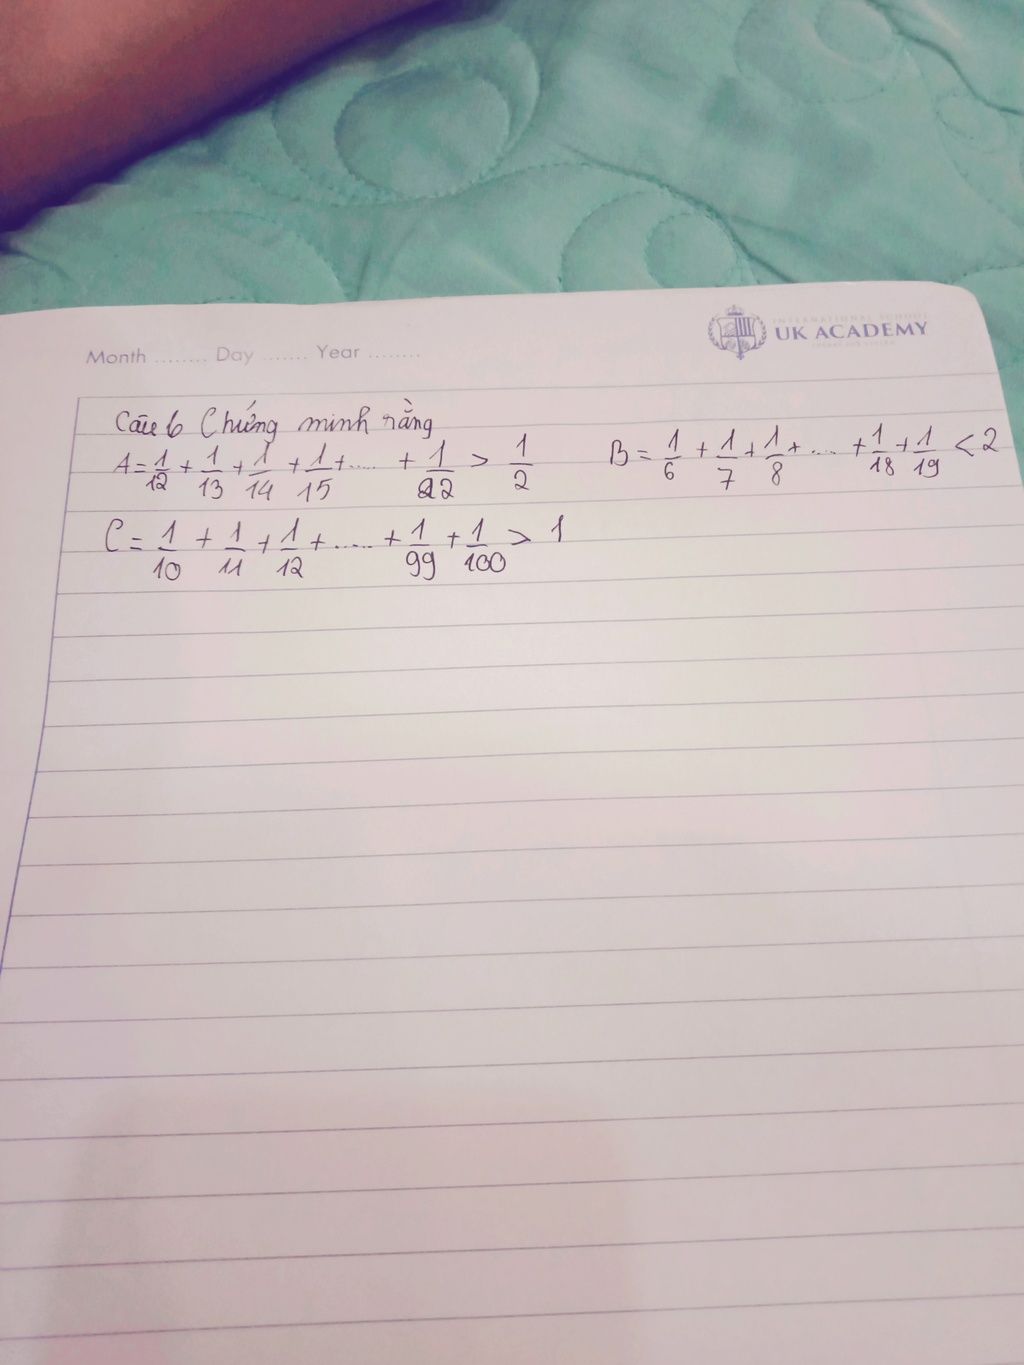 INTERNATIONAL SCHOOL
UK ACADEMY
Month ........ Day ....... Year ........
Câu 6 Chứng minh rằng
A = 1/12 + 1/13 + 1/14 + 1/15 + ..... + 1/22 > 1/2 B = 1/6 + 1/7 + 1/8 + .... + 1/18 + 1/19 < 2
C = 1/10 + 1/11 + 1/12 + ..... + 1/99 + 1/100 > 1